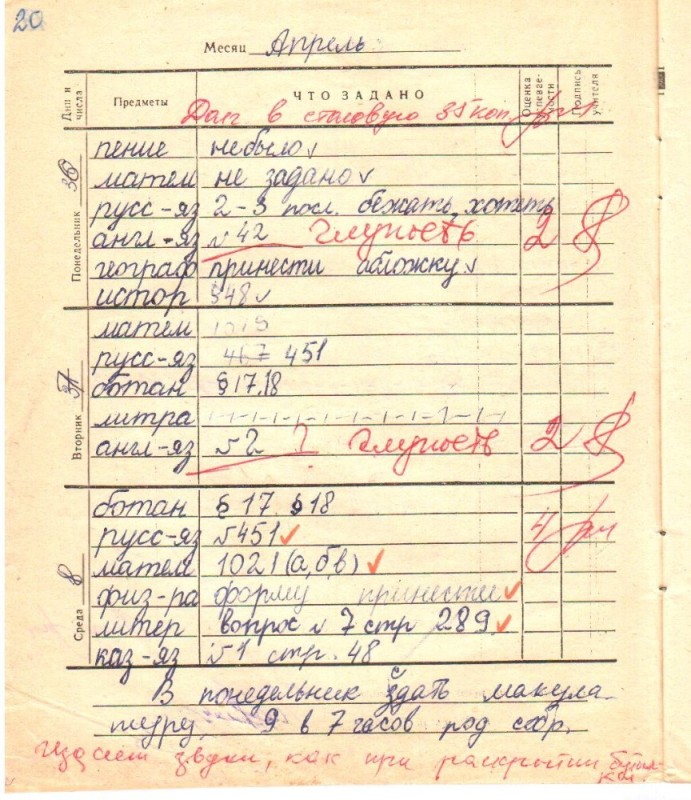 20
Месяц Апрель
Дни и числа Предметы ЧТО ЗАДАНО Оценка успеваемости Подпись учителя
Долг в столовую 35 коп.
Понедельник
пение не было
матем не задано
русс-яз 2-3 посл. бежать, хотеть
англ-яз №42 Глупость 2
географ принести обложку
истор §48
Вторник
матем
русс-яз 467 451
ботан § 17,18
литра
англ-яз №2 ? Глупость 2
Среда 8
ботан § 17. §18
русс-яз №451 4
матем 1021(а,б,в)
физ-ра форму принести
литер вопрос № 7 стр 289
каз-яз №1 стр. 48
В понедельник сдать макула
туру. 9 в 7 часов род собр.
Издает звуки, как при раскрытии бутыл-
ки.